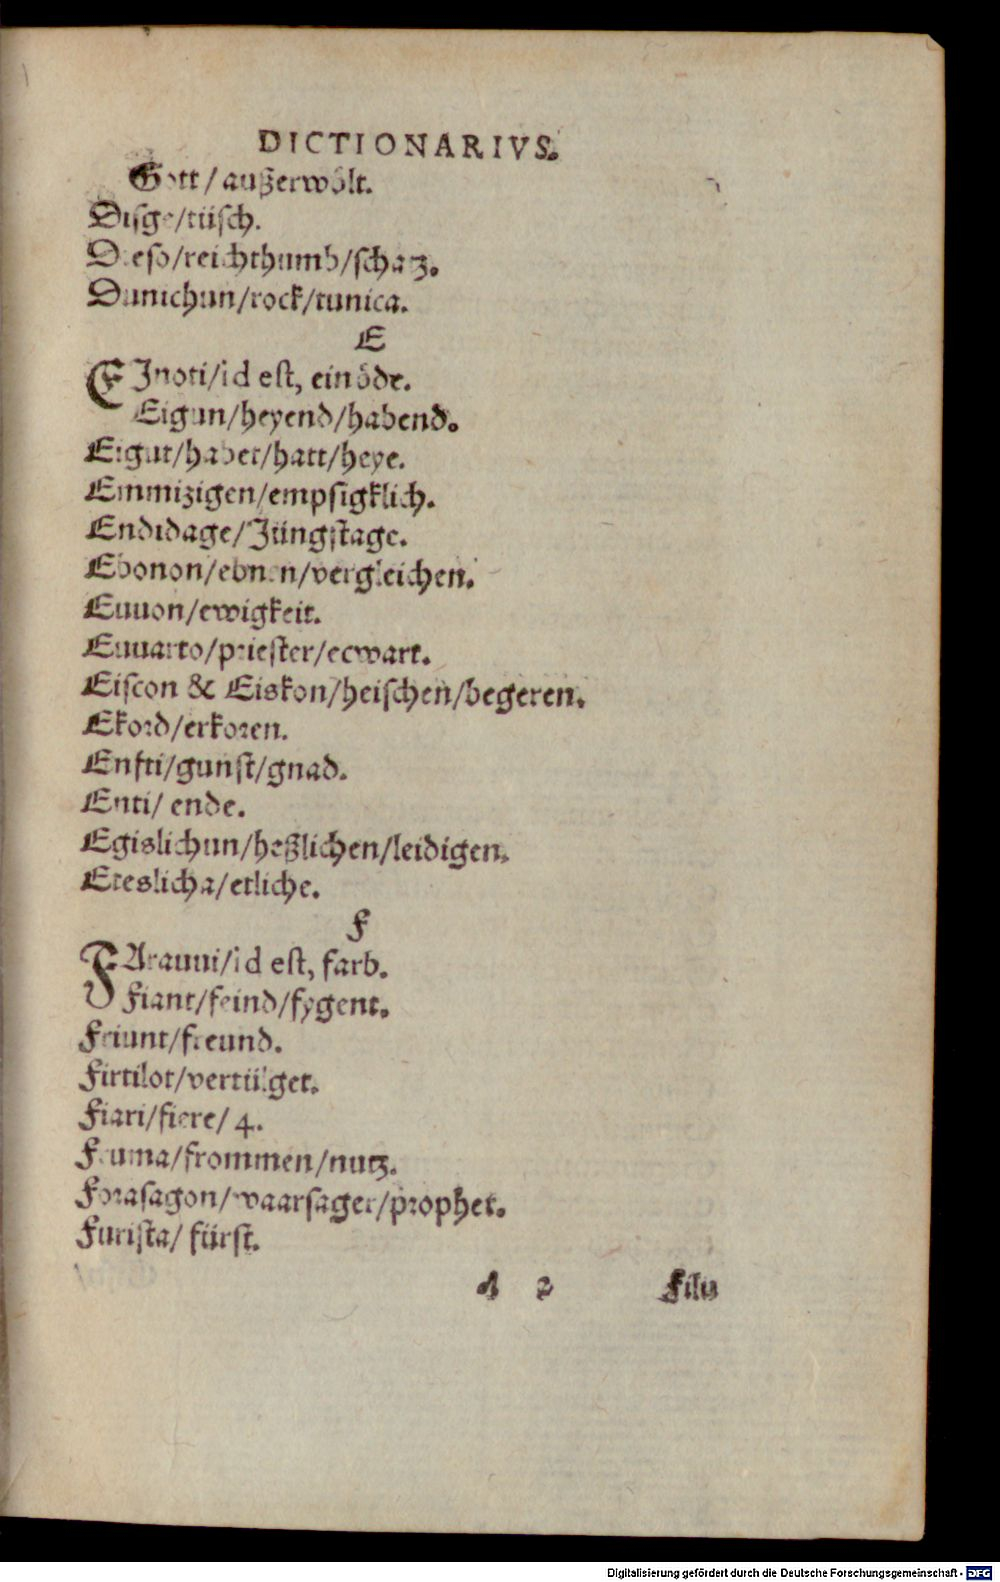 DICTIONARIVS.
Gott/ außerwoͤlt.
Disge/tüsch.
Dreso/reichthumb/schatz.
Dunichun/rock/tunica.
E
EJnoti/id est, einoͤde.
Eigun/heyend/habend.
Eigut/habet/hatt/heye.
Emmizigen/empsigklich.
Endidage/Jüngstage.
Ebonon/ebnen/vergleichen.
Euuon/ewigkeit.
Euuarto/priester/eewart.
Eiscon & Eiskon/heischen/begeren.
Ekord/erkoren.
Ensti/gunst/gnad.
Enti/ ende.
Egislichun/heßlichen/leidigen.
Eteslicha/etliche.
F
FArauui/id est, farb.
Fiant/feind/fygent.
Friunt/freund.
Firtilot/vertülget.
Fiari/fiere/ 4.
Fruma/frommen/nutz.
Forasagon/waarsager/prophet.
Furista/ fürst.
A 2 Filu
Digitalisierung gefördert durch die Deutsche Forschungsgemeinschaft - DFG